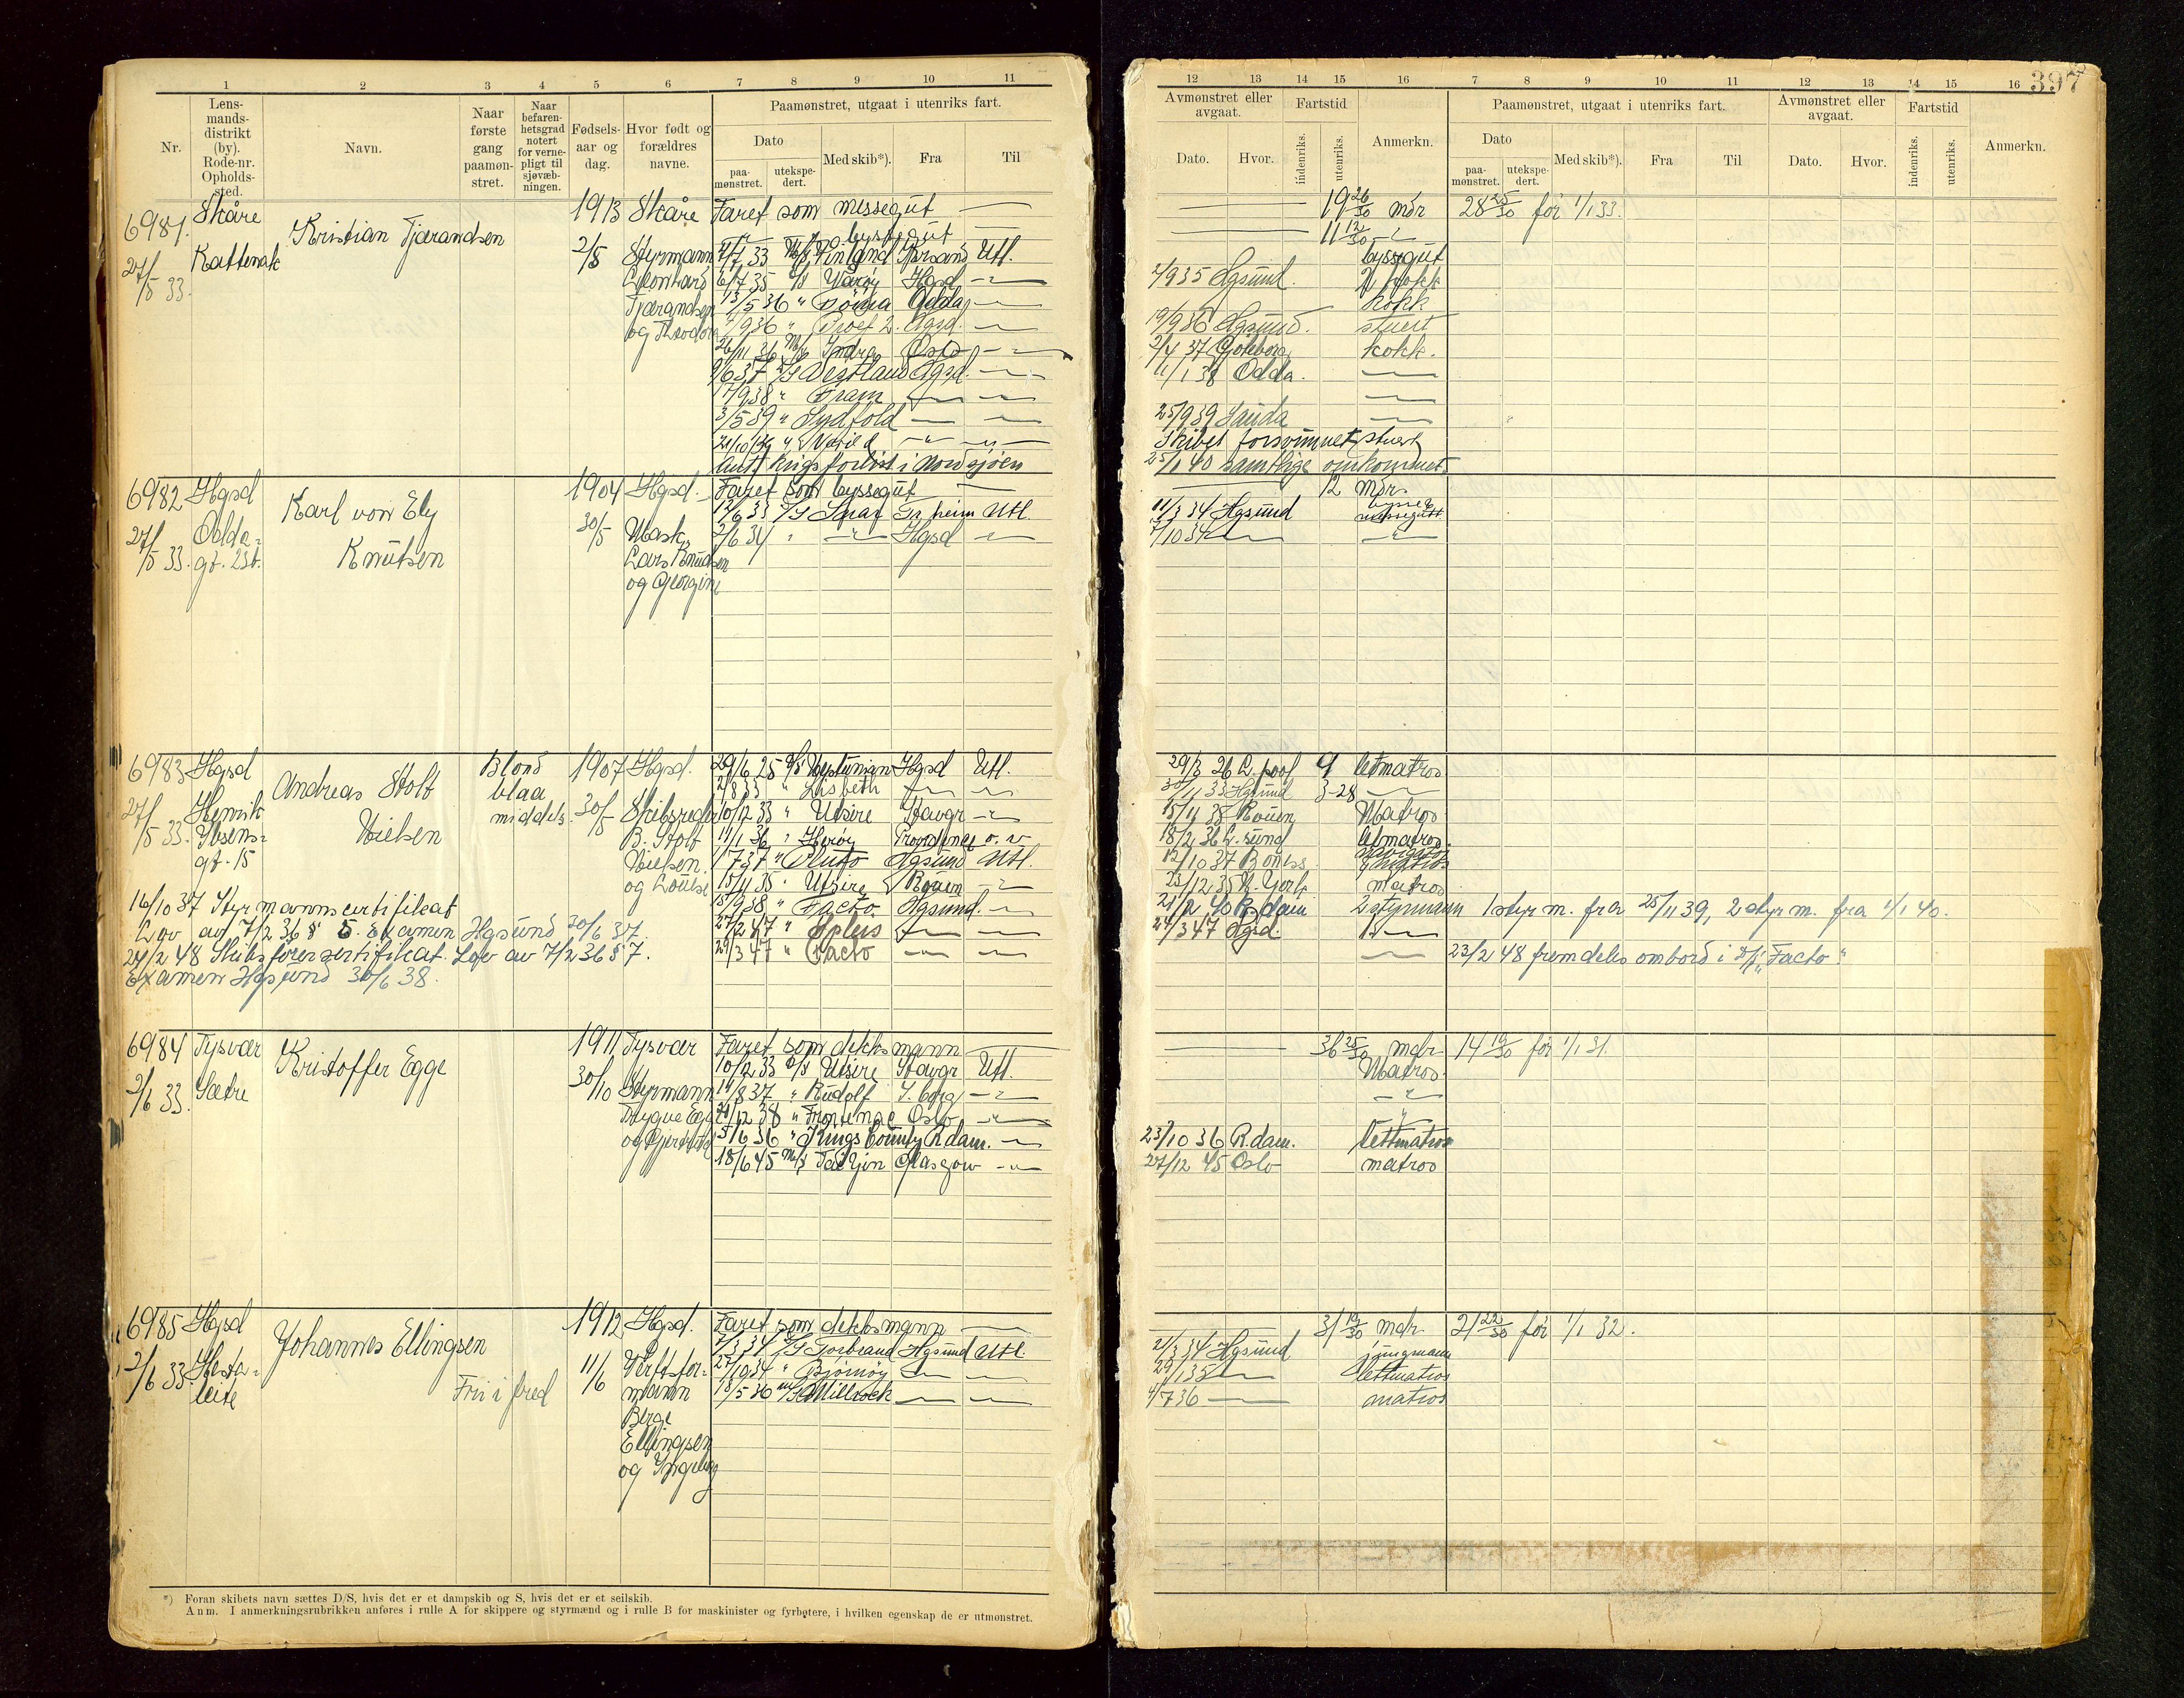 1 2 3 4 5 6 7 8 9 10 11
Nr. Lensmandsdistrikt (by). Rode-nr. Opholdssted. Navn. Naar første gang paamønstret. Naar befarenhetsgrad notert for vernepligt til sjøvæbningen. Fødselsaar og dag. Hvor født og forældres navne. Paamønstret, utgaat i utenriks fart.
Dato Med skib*). Fra Til
paamønstret. utekspedert.
6981. Skåre Kristian Tjærandsen 1913 Skåre Faret som messegut —
27/5 33. Kattenak 2/8 Styrmann
byssegut
4/7 33 M/S Finland Utl.
Leonhard 6/7 35 D/S Varøy Hgsd —"—
Tjærandsen 13/5 36 " Odda —
og Theodora 9 36 " Hgsd. —
26/11 36 M/S Indra Oslo —"—
9/6 37 D/S Vestland Hgsd. —
17/9 38 " Fram — —
3/5 39 " Sydfold — —
21/10 39 " Varild —"— —"—
Ant. krigsforlist i Nordsjøen
6982 Hgsd Karl von Ely 1904 Hgsd. Faret som byssegut —
27/5 33. Odda- Knutsen 30/5 Mask. 12/6 33 D/S Snar Tr.heim Utl.
gt. 23b. 2/6 34 " —"— Hgsd —
Lars Knudsen
og Georgine
6983 Hgsd Andreas Stolt Blond 1907 Hgsd. 29/6 25 D/S Neptunian Hgsd Utl.
27/5 33. Henrik Nielsen blaa 30/5 Skibsreder 2/8 33 " Lisbeth — —
Ibsens- middels. 10/12 33 " Utsire Stavgr —"—
gt. 15 B. Stolt 14/1 36 " Herøy Providence o. v
Nielsen. 1/7 37 " Pluto Hgsund Utl.
og Louise 15/11 35 " Utsire Rouen —"—
16/10 37 Styrmannscertifikat 15/9 38 " Facto Hgsund. —
Lov av 7/2 36 § 5. Examen Hgsund 30/6 37. 27/2 47 " — —
24/2 48 Skibsførercertifikat. Lov av 7/2 36 § 7. 29/3 47 " Facto — —
Examen Hgsund 30/6 38.
6984 Tysvær Kristoffer Egge 1911 Tysvær Faret som dekksmann —
2/6 33. Sætre 30/10 Styrmann 10/12 33 D/S Utsire Stavgr Utl.
Trygve Egge 14/8 37 " Rudolf —"—
og Gjertrud 21/12 38 " Frontenac Oslo —"—
5/6 36 " Kings County R.dam. —
18/6 45 M/S Tai Yin Glasgow —"—
6985 Hgsd Johannes Ellingsen 1912 Hgsd. Faret som dekksmann —
2/6 33. Hesta-
leite Fri i fred 11/6 Verftsfor-
mann
2/3 34 D/S Torbrand Hgsund Utl.
27/10 34 " Bjørnøy — —
18/5 36 — —
Berge
Ellingsen
og Ingeborg
*) Foran skibets navn sættes D/S, hvis det er et dampskib og S, hvis det er et seilskib.
Anm. I anmerkningsrubrikken anføres i rulle A for skippere og styrmænd og i rulle B for maskinister og fyrbøtere, i hvilken egenskap de er utmønstret.
397
12 13 14 15 16 7 8 9 10 11 12 13 14 15 16
Avmønstret eller avgaat. Fartstid Anmerkn. Paamønstret, utgaat i utenriks fart. Avmønstret eller avgaat. Fartstid Anmerkn.
Dato. Hvor. indenriks. utenriks. Dato paamønstret. utekspedert. Med skib*). Fra Til Dato. Hvor. indenriks. utenriks.
— 19 26/30 mdr 28 25/30 før 1/1 33.
— 11 12/30 —"—
byssegut
2/9 35 Hgsund. 2/ kokk
kokk
19/9 36 Hgsund. stuert
2/4 37 Göteborg kokk.
11/1 38 Odda. —
—
25/9 39 Sauda —
Skibet forsvunnet stuert
25/1 40 samtlige omkommet.
— 12 mdr.
11/3 34 Hgsund
7/10 34 — —"—
29/3 26 L.pool 9 letmatros
30/11 33 Hgsund 3-28 —
15/11 35 Rouen Matros
18/2 36 letmatros.
12/10 37
23/12 35 N. York matros
21/2 40 R.dam 2 styrmann 1 styrm. fra 25/11 39, 2 styrm. fra 1/1 40.
24/3 47 Hgsd. 1. —
— 23/2 48 fremdeles ombord i D/S "Facto".
— 36 25/30 mdr 14 19/30 før 1/1 31.
Matros.
—"—
"
23/10 36 R.dam. lettmatros
27/12 45 Oslo matros
31 19/30 mdr. 21 22/30 før 1/1 32.
21/3 34 Hgsund jungmann
29/1 35 — lettmatros
4/7 36 — matros